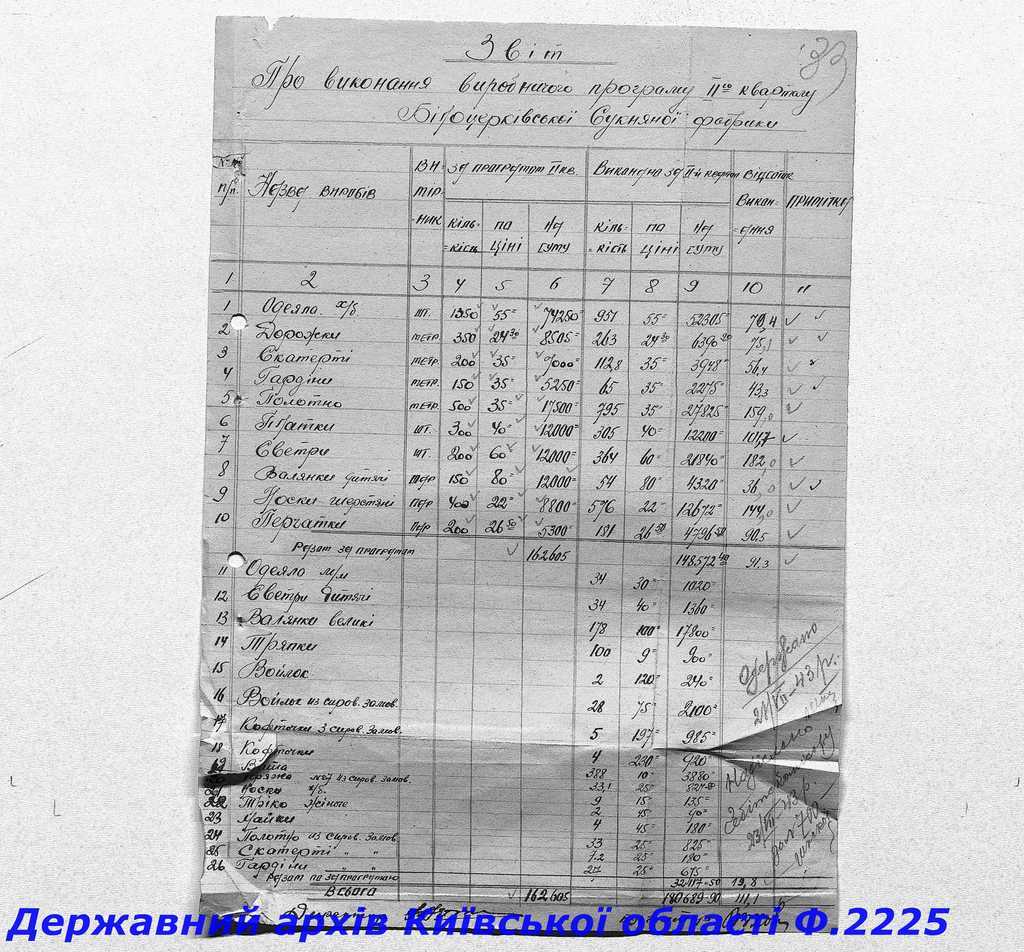 Звіт
Про виконання виробничого програму ІІго кварталу
Білоцерківської Сукняної фабрики
п/п Назва виробів ВИ-МІР-НИК За програмом ІІ кв. Виконано за ІІ-й квартал Відсоток Викон-ання ПРИМІТКИ
кіль-кість по ціні на суму кіль-кість по ціні на суму
1 2 3 4 5 6 7 8 9 10 11
1 Одеяла х/б шт. 1350 55= 74250= 951 55= 52305= 70,4
2 Дорожки метр. 350 24 30 8505= 263 24 30 6390 90 75,1
3 Скатерті метр. 200 35= 7000= 112,8 35= 3948= 56,4
4 Гардіни метр. 150 35= 5250= 65 35= 2275= 43,3
5 Полотно метр. 500 35= 17500= 795 35= 27825= 159,0
6 Платки шт. 300 40= 12000= 305 40= 12200= 101,7
7 Светри шт. 200 60= 12000= 364 60= 21840= 182,0
8 Валянки дитячі пар 150 80= 12000= 54 80= 4320= 36,0
9 Носки шерстяні пар 400 22= 8800= 576 22= 12672= 144,0
10 Перчатки пар 200 26 50 5300= 181 26 50 4796 50 90,5
Разом за програмом 162605 148572 40 91,3
11 Одеяло п/ш 34 30= 1020=
12 Светри дитячі 34 40= 1360=
13 Валянки великі 178 100= 17800=
14 Тряпки 100 9= 900=
15 Войлок 2 120= 240=
16 Войлок из сиров. замов. 28 75= 2100=
17 Кофточки з сиров. замов. 5 197= 985=
18 Кофточки 4 230= 920=
19 Вата
20 Пряжа №7 из сиров. замов. 388 10= 3880=
21 Носки х/б. 33,1 25= 827-50
22 Тріко жіноче 9 15= 135=
23 Майки 2 45= 90=
24 Полотно из сиров. замов. 4 45= 180=
25 Скатерті " " 33 25= 825=
26 Гардіни " " 7.2 25= 180=
27 25= 675=
Разом позапрограмою 32117-50 19,8
Всього 162605 180689-90 111,1
Одержано
21/VII-43 р.
Надіслано
23/VII-43 р.
Директор
Державний архів Київської області Ф.2225